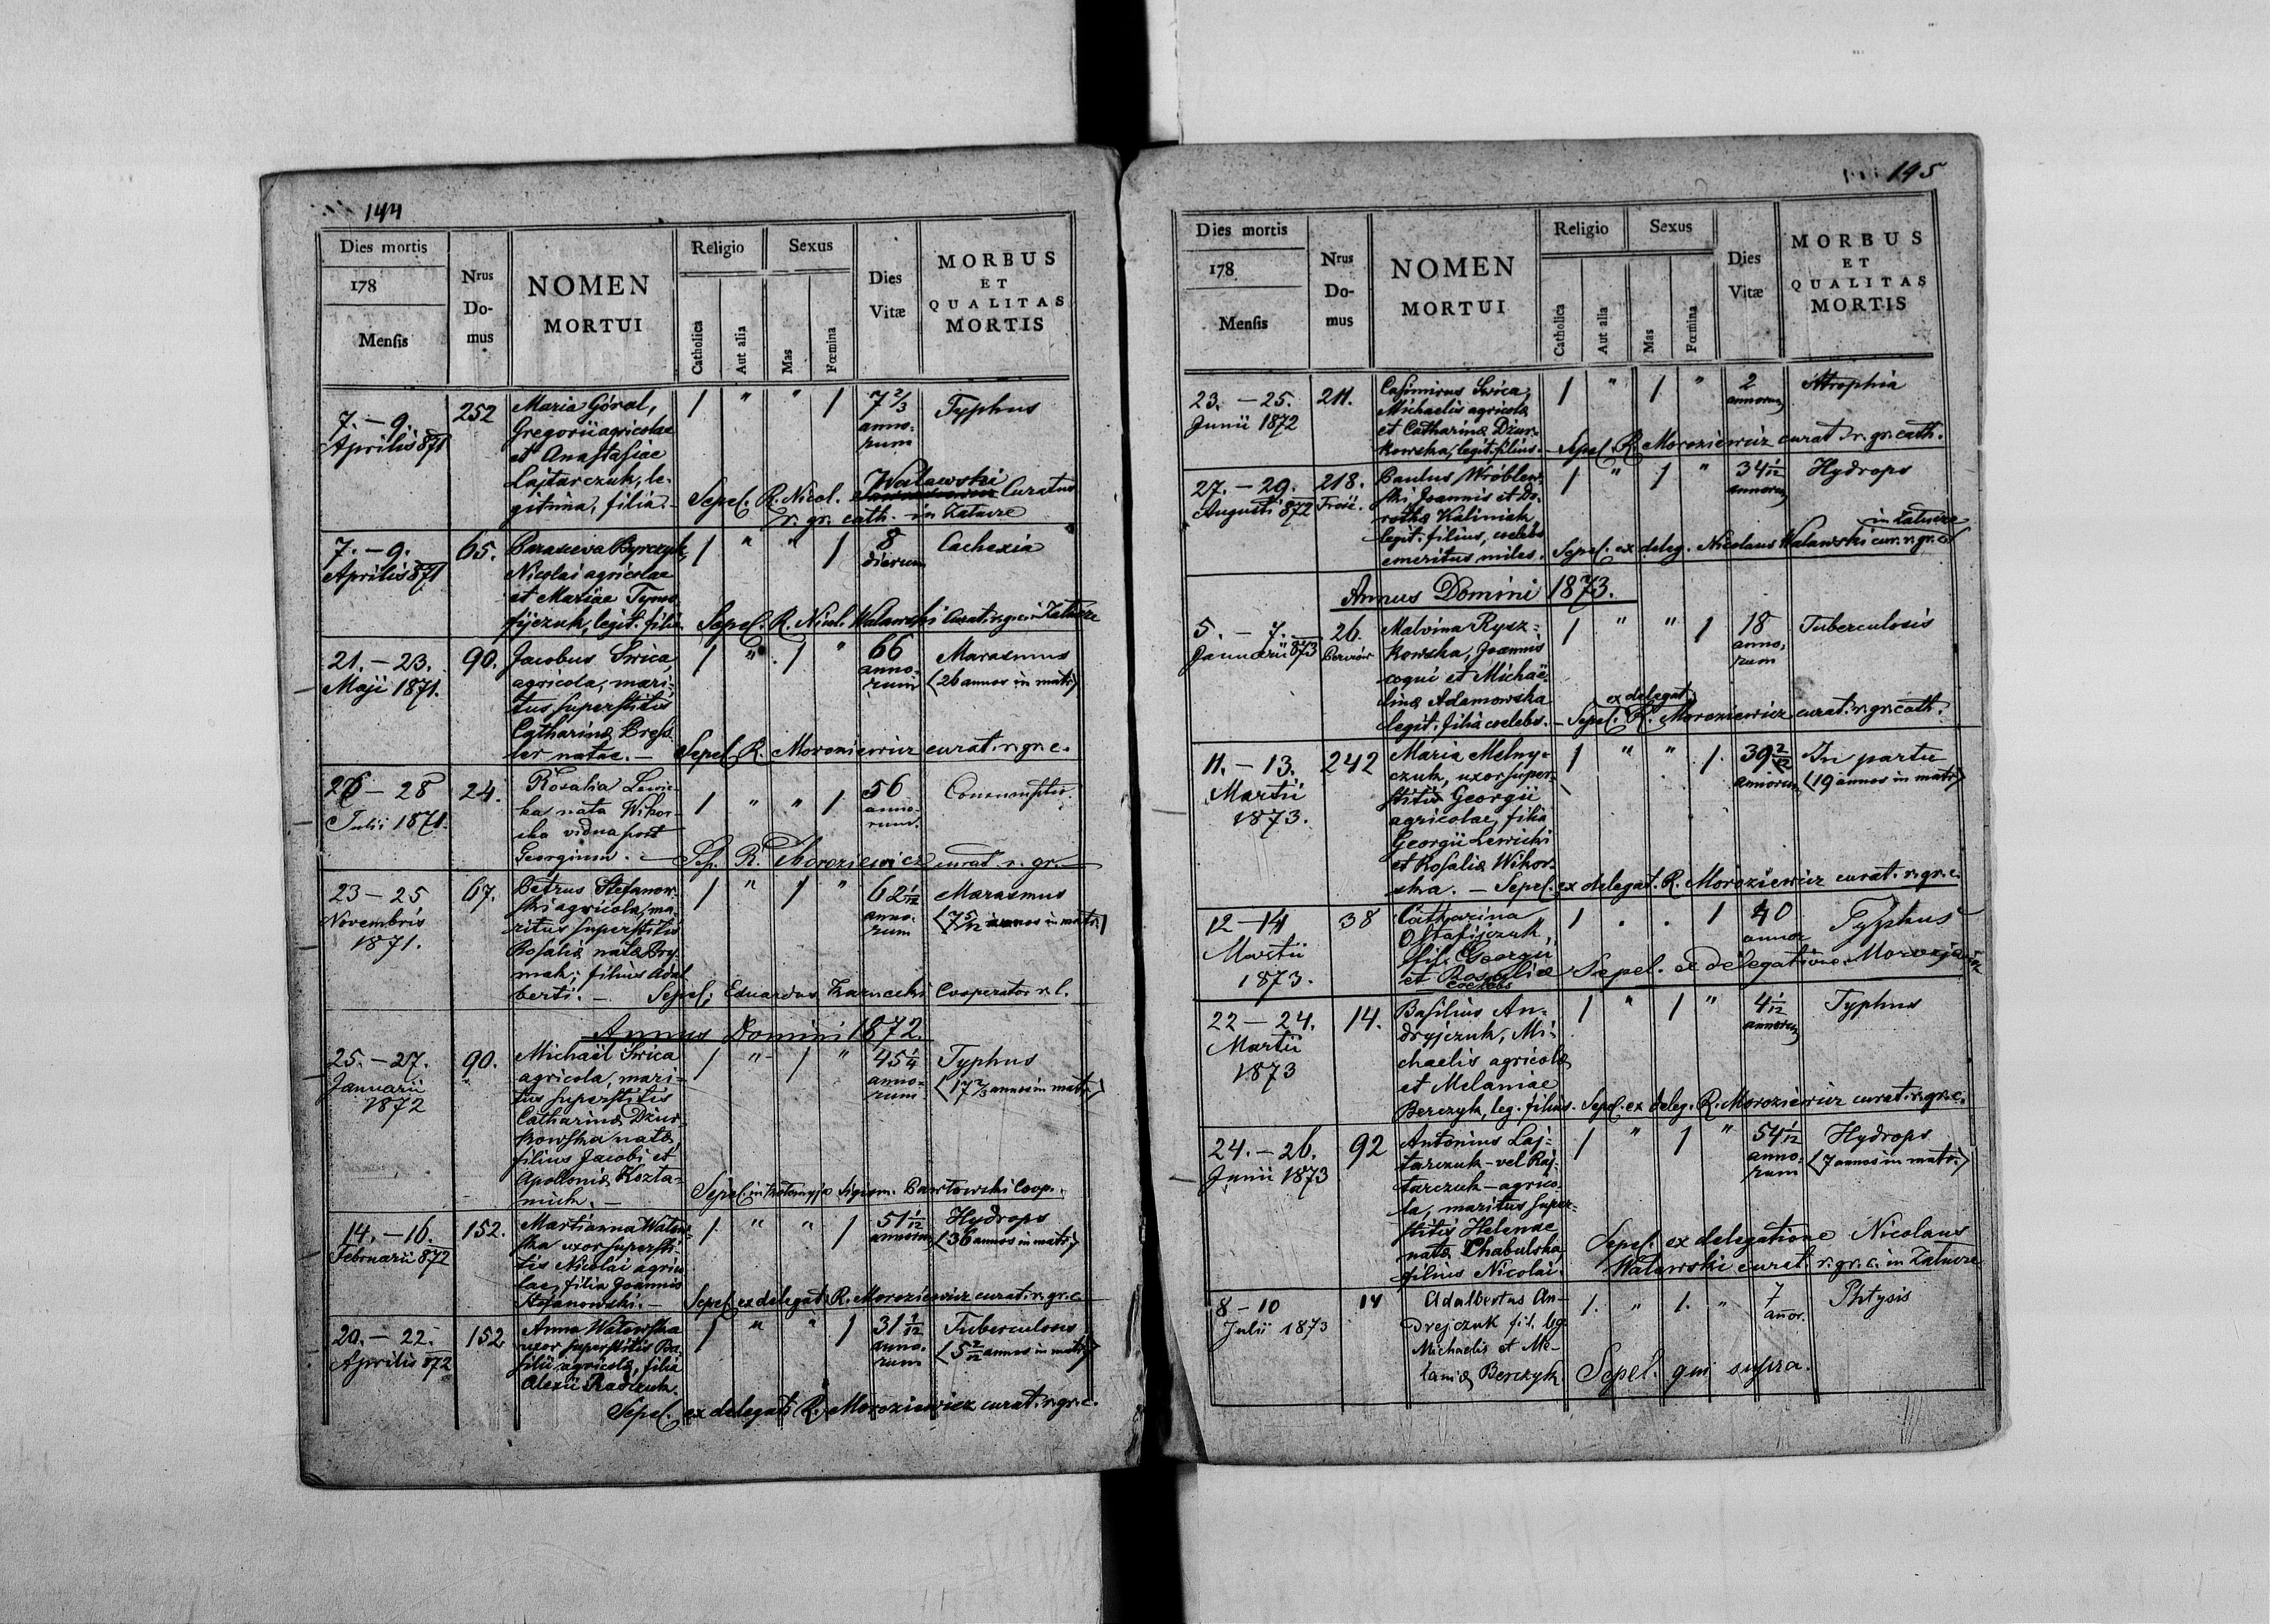 144
Dies mortis
178
Mensis
Nrus
Do-
mus
NOMEN
MORTUI
Religio
Catholica
Aut alia
Sexus
Mas
Fœmina
Dies
Vitæ
MORBUS
ET
QUALITAS
MORTIS
7. – 9.
Aprilis 871
252
Maria Góral,
Gregorii agricolae
et Anastasiae
Lajtarczuk, le-
gitima, filia. –
1 " " 1
7 2/3
anno-
rum
Typhus
Walawski
Sepel. R. Nicol. Curatus
r. gr. cath. in Zalucze
7. – 9.
Aprilis 871
65.
Parasceva Byrczyk,
Nicolai agricolae
et Mariae Tymo
fijczuk, legit. filia
1 " " 1
8
dierum
Cachexia
Sepel. R. Nicol. Walawski Curat. r. gr. c. in Zalucze
21. – 23.
Maji 1871.
90.
Jacobus Swica,
agricola, mari-
tus superstitis
Catharinæ Dress-
ler natae. –
1 " 1 "
66
anno-
rum
Marasmus
(26 annos in matr.)
Sepel. R. Moroziewicz curat. r. gr. c.
26 – 28
Julii 1871.
24.
Rosalia Lewic-
ka nata Wikor-
ska vidua post
Georgium. –
1 " " 1
56
anno-
rum.
Consumptio.
Sep. R. Moroziewicz curat. r. gr. –
23 – 25
Novembris
1871.
67.
Petrus Stefanow-
ski agricola, ma-
ritus superstitis
Rosaliæ natæ Dry-
mak; filius Adal
berti. –
1 " 1 "
62 1/12
anno-
rum
Marasmus
(7 5/12 annos in matr.)
Sepel. Eduardus Zarucki Cooperator r. l.
Annus Domini 1872.
25. – 27.
Januarii
1872
90.
Michaël Swica
agricola, mari-
tus superstitis
Catharinæ Dziur
kowska natæ,
filius Jacobi et
Apolloniæ Kozta-
nuik. –
1 " 1 "
45 1/4
anno-
rum
Typhus
(17 2/3 annos in matr.)
Sepel. in Kołomyja Sigism. Pawłowski Coop.
14. – 16.
Februarii 872
152.
Martianna Watow-
ska uxor supersti-
tis Nicolai agrico
lae, filia Joannis
Stojanowski. –
1. " " 1
51 1/12
annorum
Hydrops
(36 annos in matr.)
Sepel. ex delegat. R. Moroziewicz curat. r. gr. c.
20. – 22.
Aprilis 872
152
Anna Watowska
uxor superstitis Ba-
silii agricolæ, filia
Alexii Radczuk.
1 " " 1
31 1/12
anno-
rum
Tuberculosis
(5 2/12 annos in matr.)
Sepel. ex delegat. R. Moroziewicz curat. r. gr. c.
195
Dies mortis
178
Mensis
Nrus
Do-
mus
NOMEN
MORTUI
Religio
Catholica
Aut alia
Sexus
Mas
Fœmina
Dies
Vitæ
MORBUS
ET
QUALITAS
MORTIS
23. – 25.
Junii 1872
211.
Casimirus Swica,
Michaelis agricolæ
et Catharinæ Dziur-
kowska, legit. filius. –
1 " 1 "
2
annorum
Atrophia
Sepel. R. Moroziewicz curat. r. gr. cath.
27. – 29.
Augusti 872
218.
Paulus Wróblew-
ski, Joannis et Do-
rothæ Kaliniak
legit. filius, coelebs
emeritus miles.
1 " 1 "
34 1/12
annorum
Hydrops
in Zalucze
Sepel. ex deleg. Nicolaus Walawski cur. r. gr. c.
Annus Domini 1873.
5. – 7.
Januarii 873
26.
Malvina Rysz-
kowska, Joannis
coqui et Michaë-
linæ Adamowska
legit. filia coelebs. –
1 " " 1
18
anno-
rum
Tuberculosis
ex delegat.
Sepel. R. Moroziewicz curat. r. gr. cath.
11. – 13.
Martii
1873.
242
Maria Melny-
czuk, uxor super-
stitis Georgii
agricolae, filia
Georgii Lewicki
et Rosaliæ Wikor-
ska. – Sepel. ex delegat. R. Moroziewicz curat. r. gr. c.
1 " " 1.
39 2/12
annorum
In partu
(19 annos in matr.)
12 – 14
Martii
1873.
38
Catharina
Ostafijczuk,
fil. Georgii
et Rosaliæ
coelebs
1 . . 1
40
annor
Typhus
Sepel. ex delegatione Moroziewicz
22 – 24.
Martii
1873
14.
Basilius An-
dryjczuk, Mi-
chaelis agricolæ
et Melaniae
Berczyk, leg. filius. Sepel. ex deleg. R. Moroziewicz curat. r. gr. c.
1 " 1 "
4 1/12
annorum
Typhus
24. – 26.
Junii 1873
92
Antonius Laj-
tarczuk – vel Raj-
tarczuk – agrico-
la, maritus super-
stitis Helenae
natæ Chabulska,
filius Nicolai.
1 " 1 "
54 1/12
anno-
rum
Hydrops
(7 annos in matr.)
Sepel. ex delegatione Nicolaus
Walawski curat. r. gr. c. in Zalucze
8 – 10
Julii 1873
14
Adalbertus An-
drejczuk fil. leg.
Michaelis et Me-
laniæ Berczyk
1. " 1. "
7
añor.
Phtysis
Sepel. qui supra.